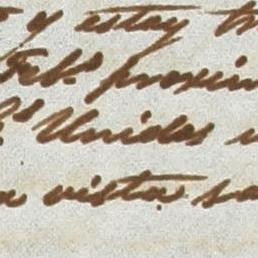 y estoy
Feb.º proxim
E.s Unidos
vista sa